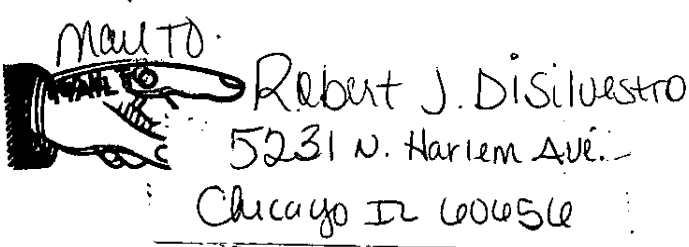 Mail TO.
MAIL TO
Robert J. DiSilvestro
5231 N. Harlem Ave.
Chicago IL 60656